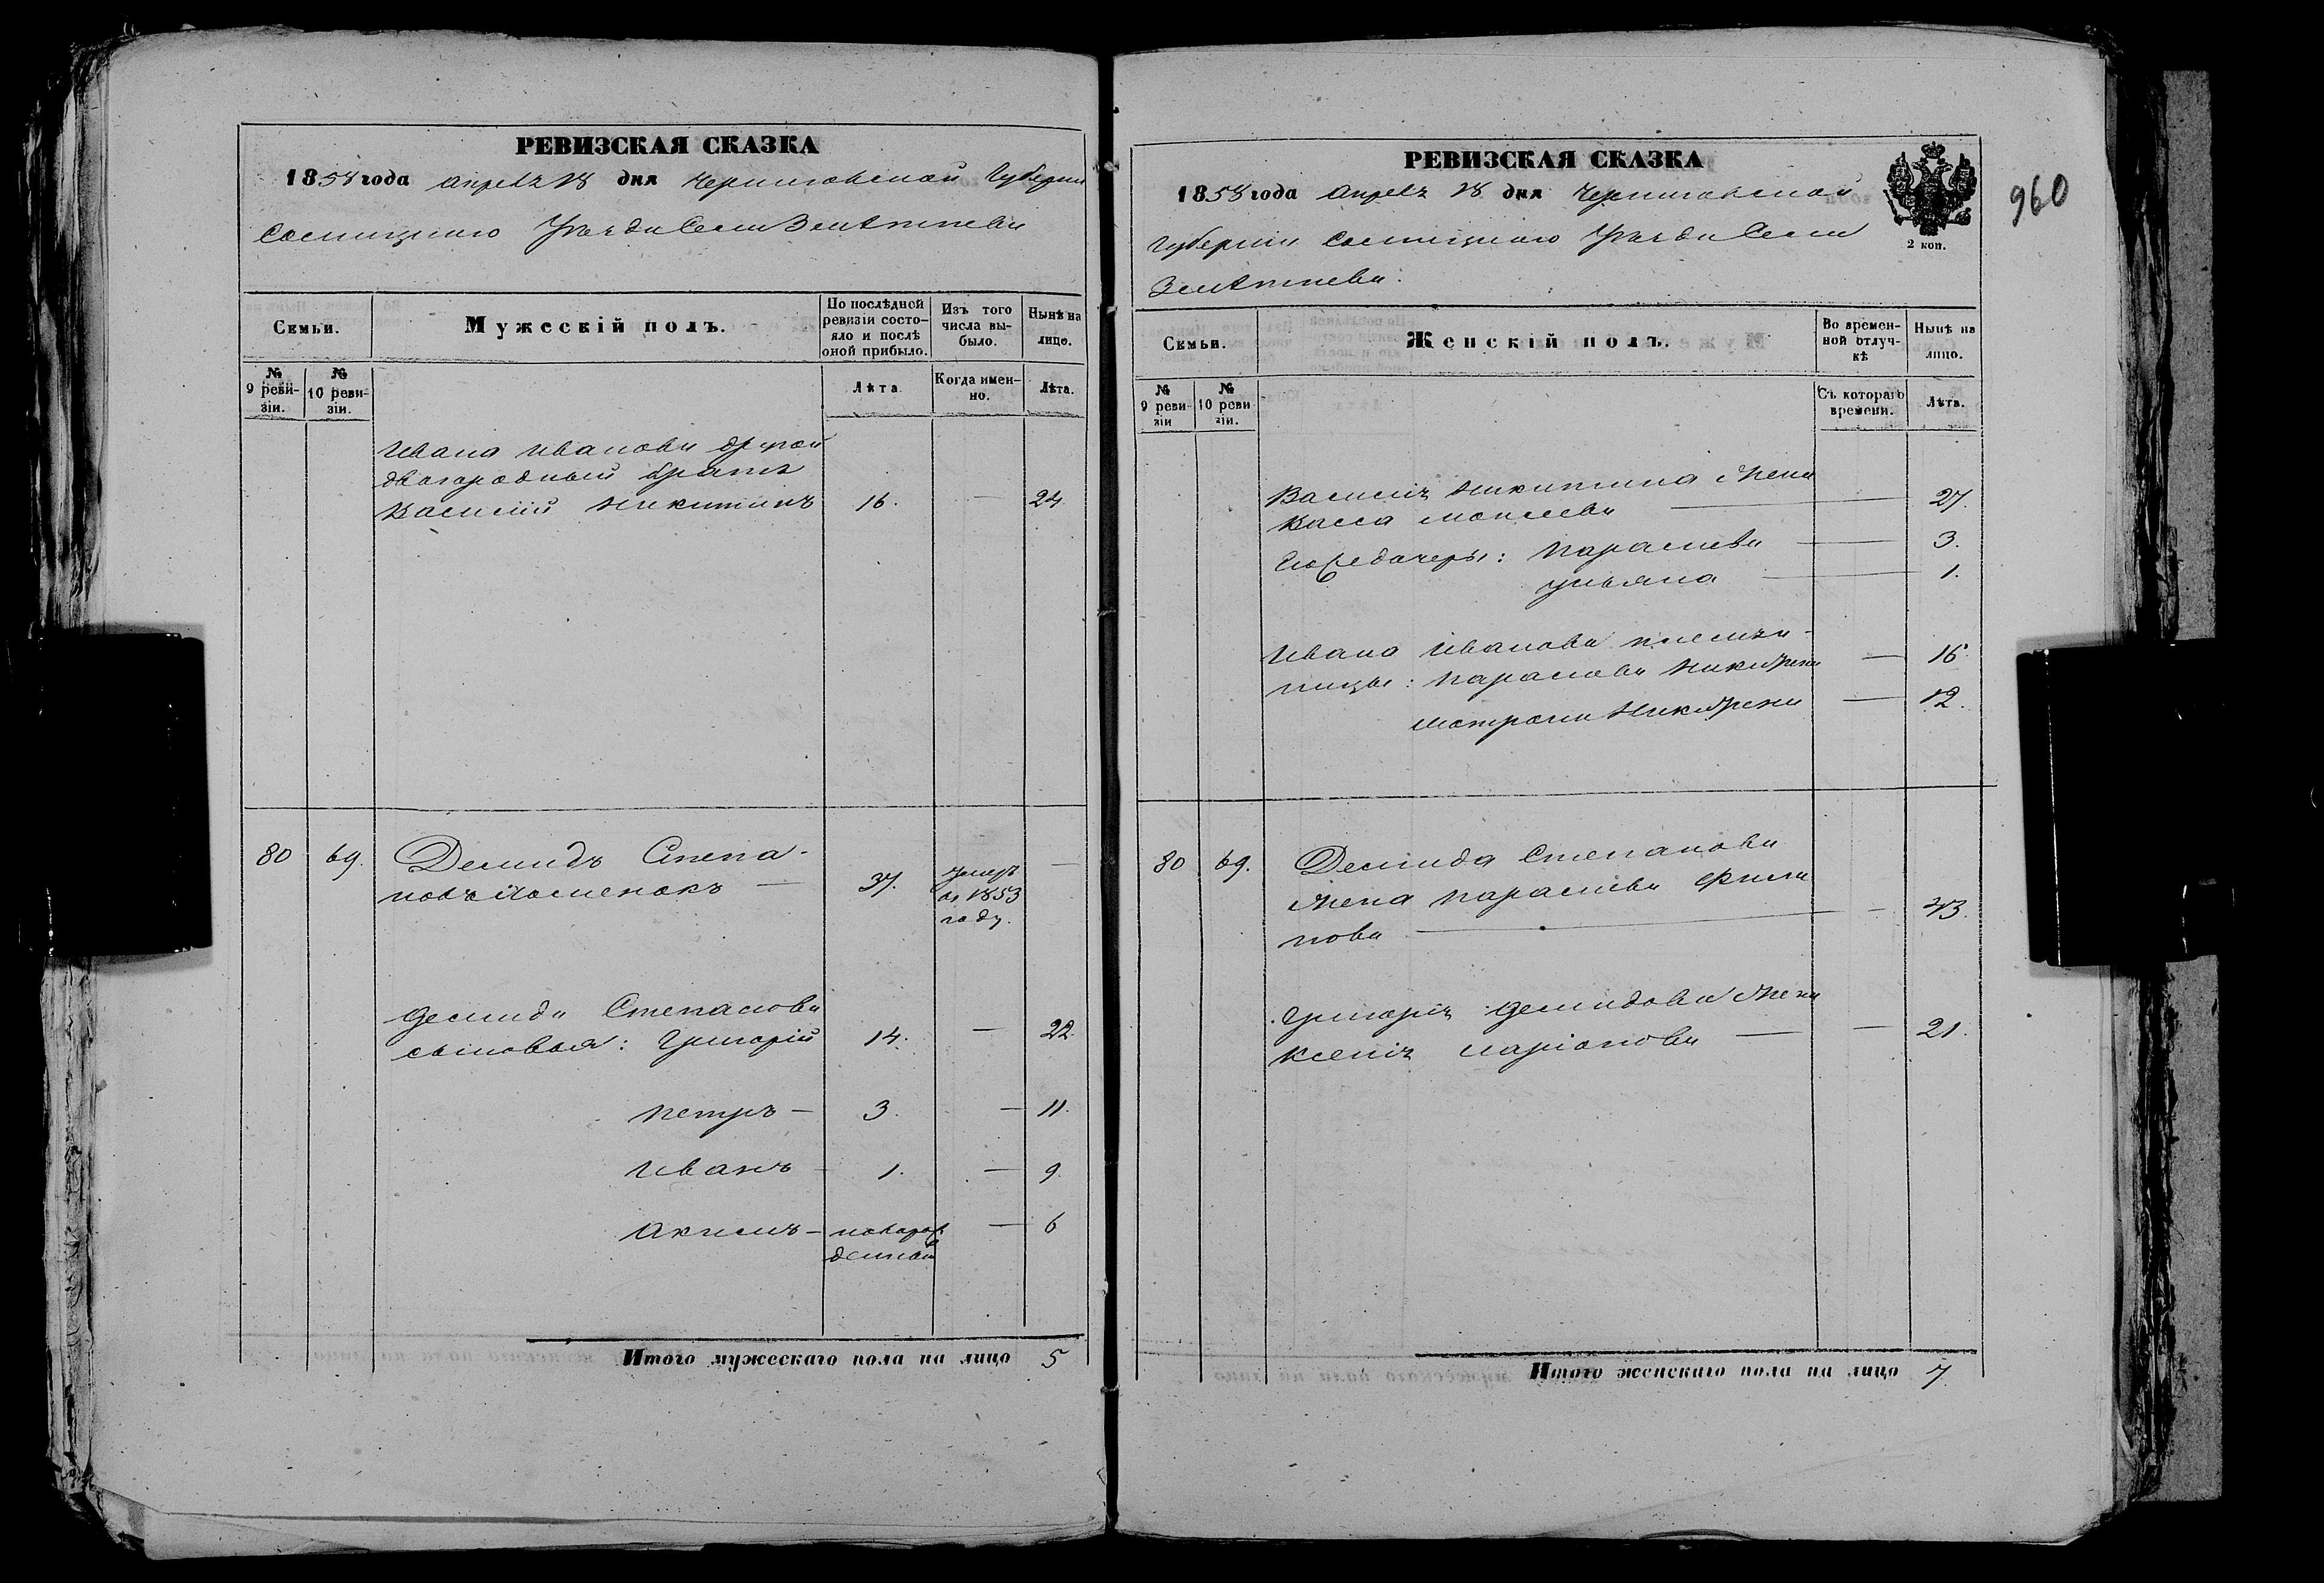 РЕВИЗСКАЯ СКАЗКА
1858 года Апреля 18 дня Черниговской Губернии
Сосницкаго Уезда Села
Семьи.
Мужескій полъ.
По послѣдней ревизіи состо-
яло и послѣ оной прибыло.
Изъ того числа вы-
было.
Нынѣ на лицо.
№ 9 реви-
зіи.
№ 10 реви-
зіи.
Лѣта
Когда имен-
но.
Лѣта.
Ивана Иванова другой
двоюродный братъ
Василій Никитинъ 16. — 24
80 69. Демидъ Степа-
новъ — 37. умеръ —
въ 1853
году.
Демида Степанова
сыновья: Григорій 14. — 22.
Петръ — 3. — 11.
Иванъ — 1. — 9.
Акимъ — новорож — 6
денный
Итого мужескаго пола на лицо 5
РЕВИЗСКАЯ СКАЗКА
1858 года Апреля 18 дня Черниговской
Губернии Сосницкаго Уезда Села
2 коп.
960
Семьи.
Женскій полъ.
Во времен-
ной отлуч-
кѣ
Нынѣ на лицо.
№ 9 реви-
зіи
№ 10 реви-
зіи.
Съ котораго
времени.
Лѣта.
Василія Никитина жена
Васса Моисеева — 27.
Ихже дочери: Параскева — 3.
Ульяна — 1.
Ивана Иванова племян-
ницы: Параскева — 16
Матрона — 12.
80 69. Демида Степанова
жена Параскева Фили
пова — 43.
Григорія Демидова жена
Ксенія Ларіонова — 21.
Итого женскаго пола на лицо 7